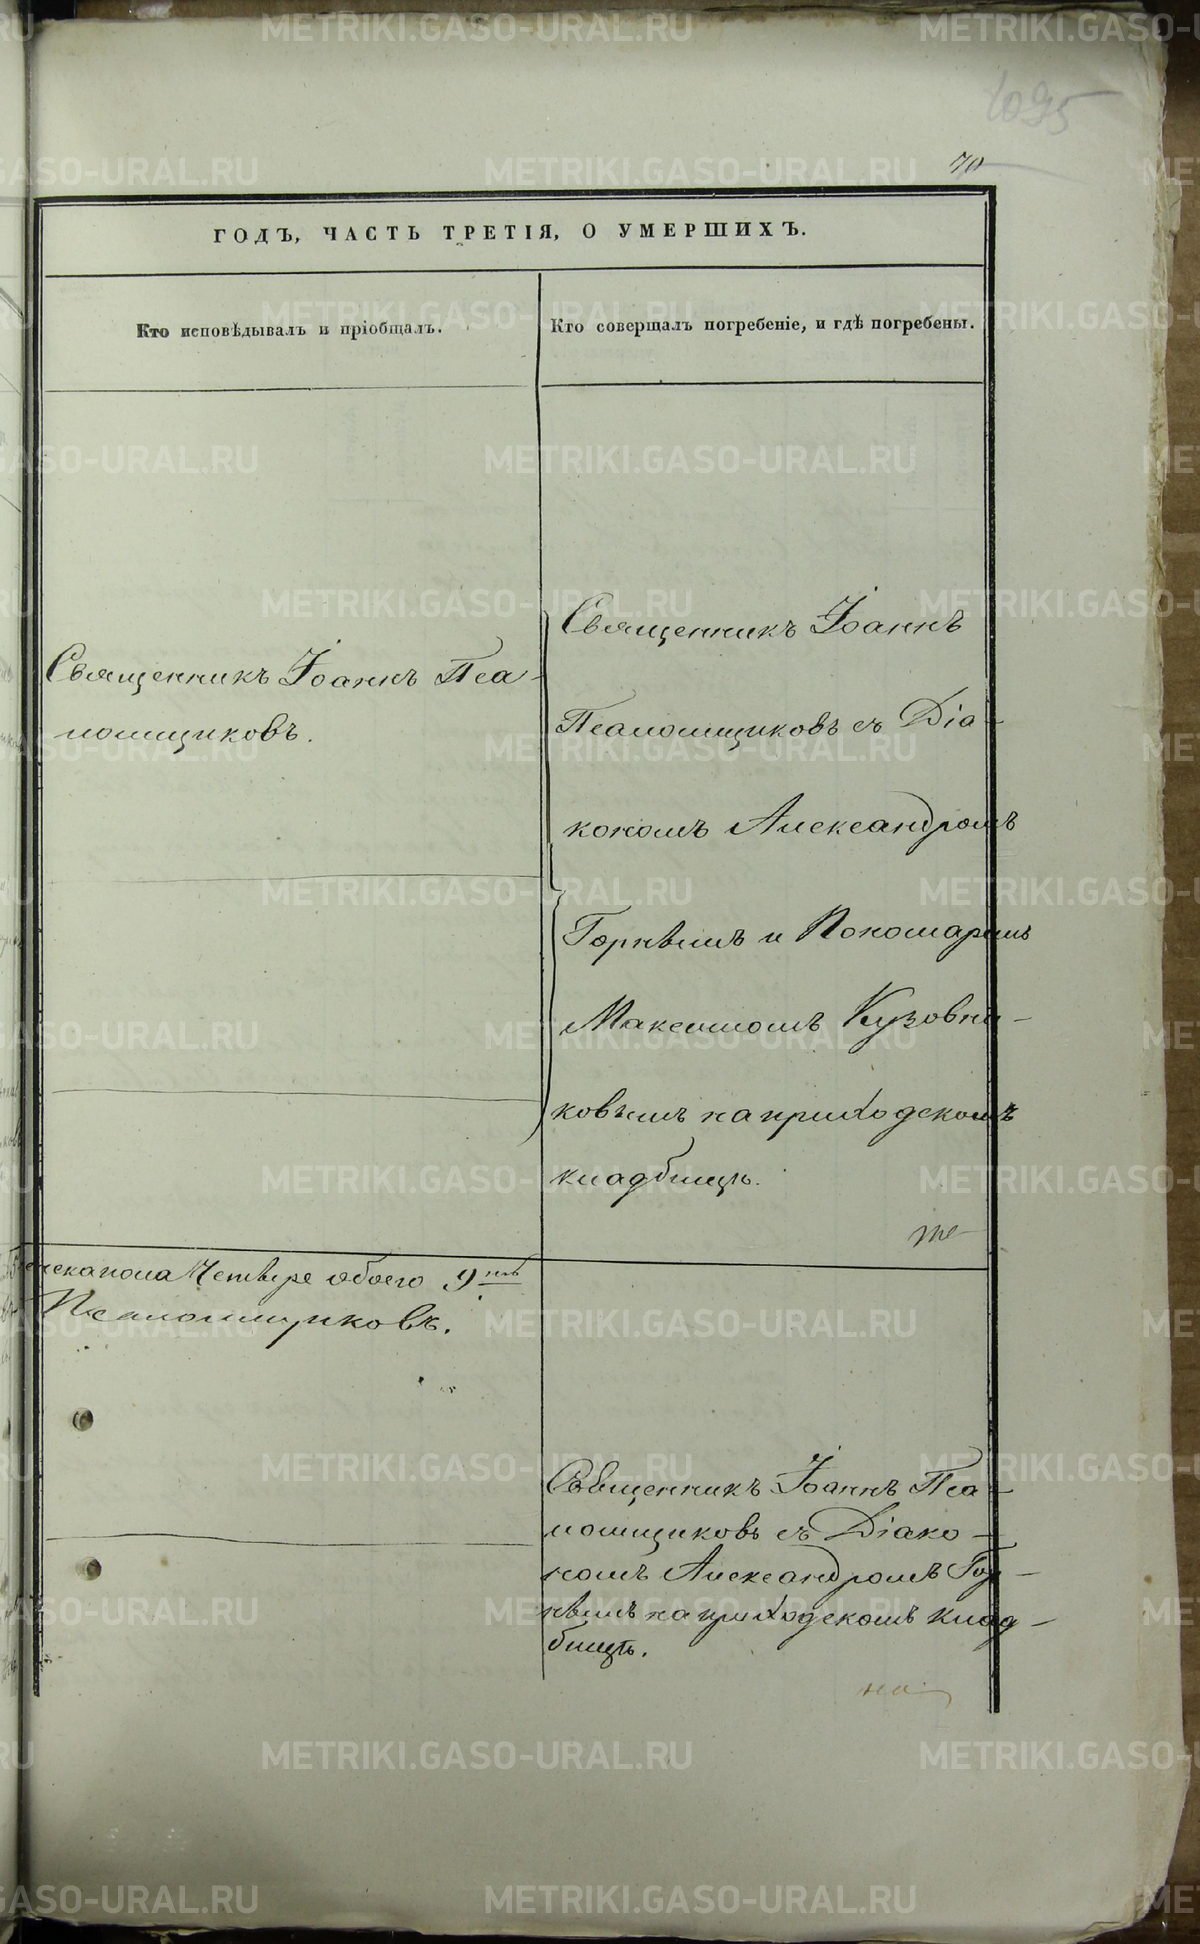 1095
70
ГОДЪ, ЧАСТЬ ТРЕТІЯ, О УМЕРШИХЪ.
Кто исповѣдывалъ и пріобщалъ.
Кто совершалъ погребеніе, и гдѣ погребены.
Священникъ Іоаннъ Пса-
ломщиковъ.
Священникъ Іоаннъ
Псаломщиковъ съ Діа-
кономъ Александромъ
Горнымъ и Пономаремъ
Максимомъ Кузовни-
ковымъ на приходскомъ
кладбищѣ.
человѣка четыре обоего 9
Псаломщиковъ.
Священникъ Іоаннъ Пса-
ломщиковъ съ Діако-
номъ Александромъ Гор-
нымъ на приходскомъ клад-
бищѣ.
METRIKI.GASO-URAL.RU